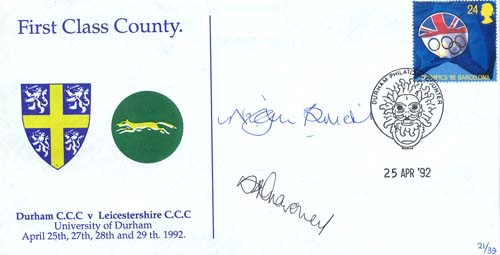 First Class County.
24
OLYMPICS '92 BARCELONA
DURHAM PHILATELIC COUNTER
25 APR '92
Durham C.C.C v Leicestershire C.C.C
University of Durham
April 25th, 27th, 28th and 29 th. 1992.
21/39